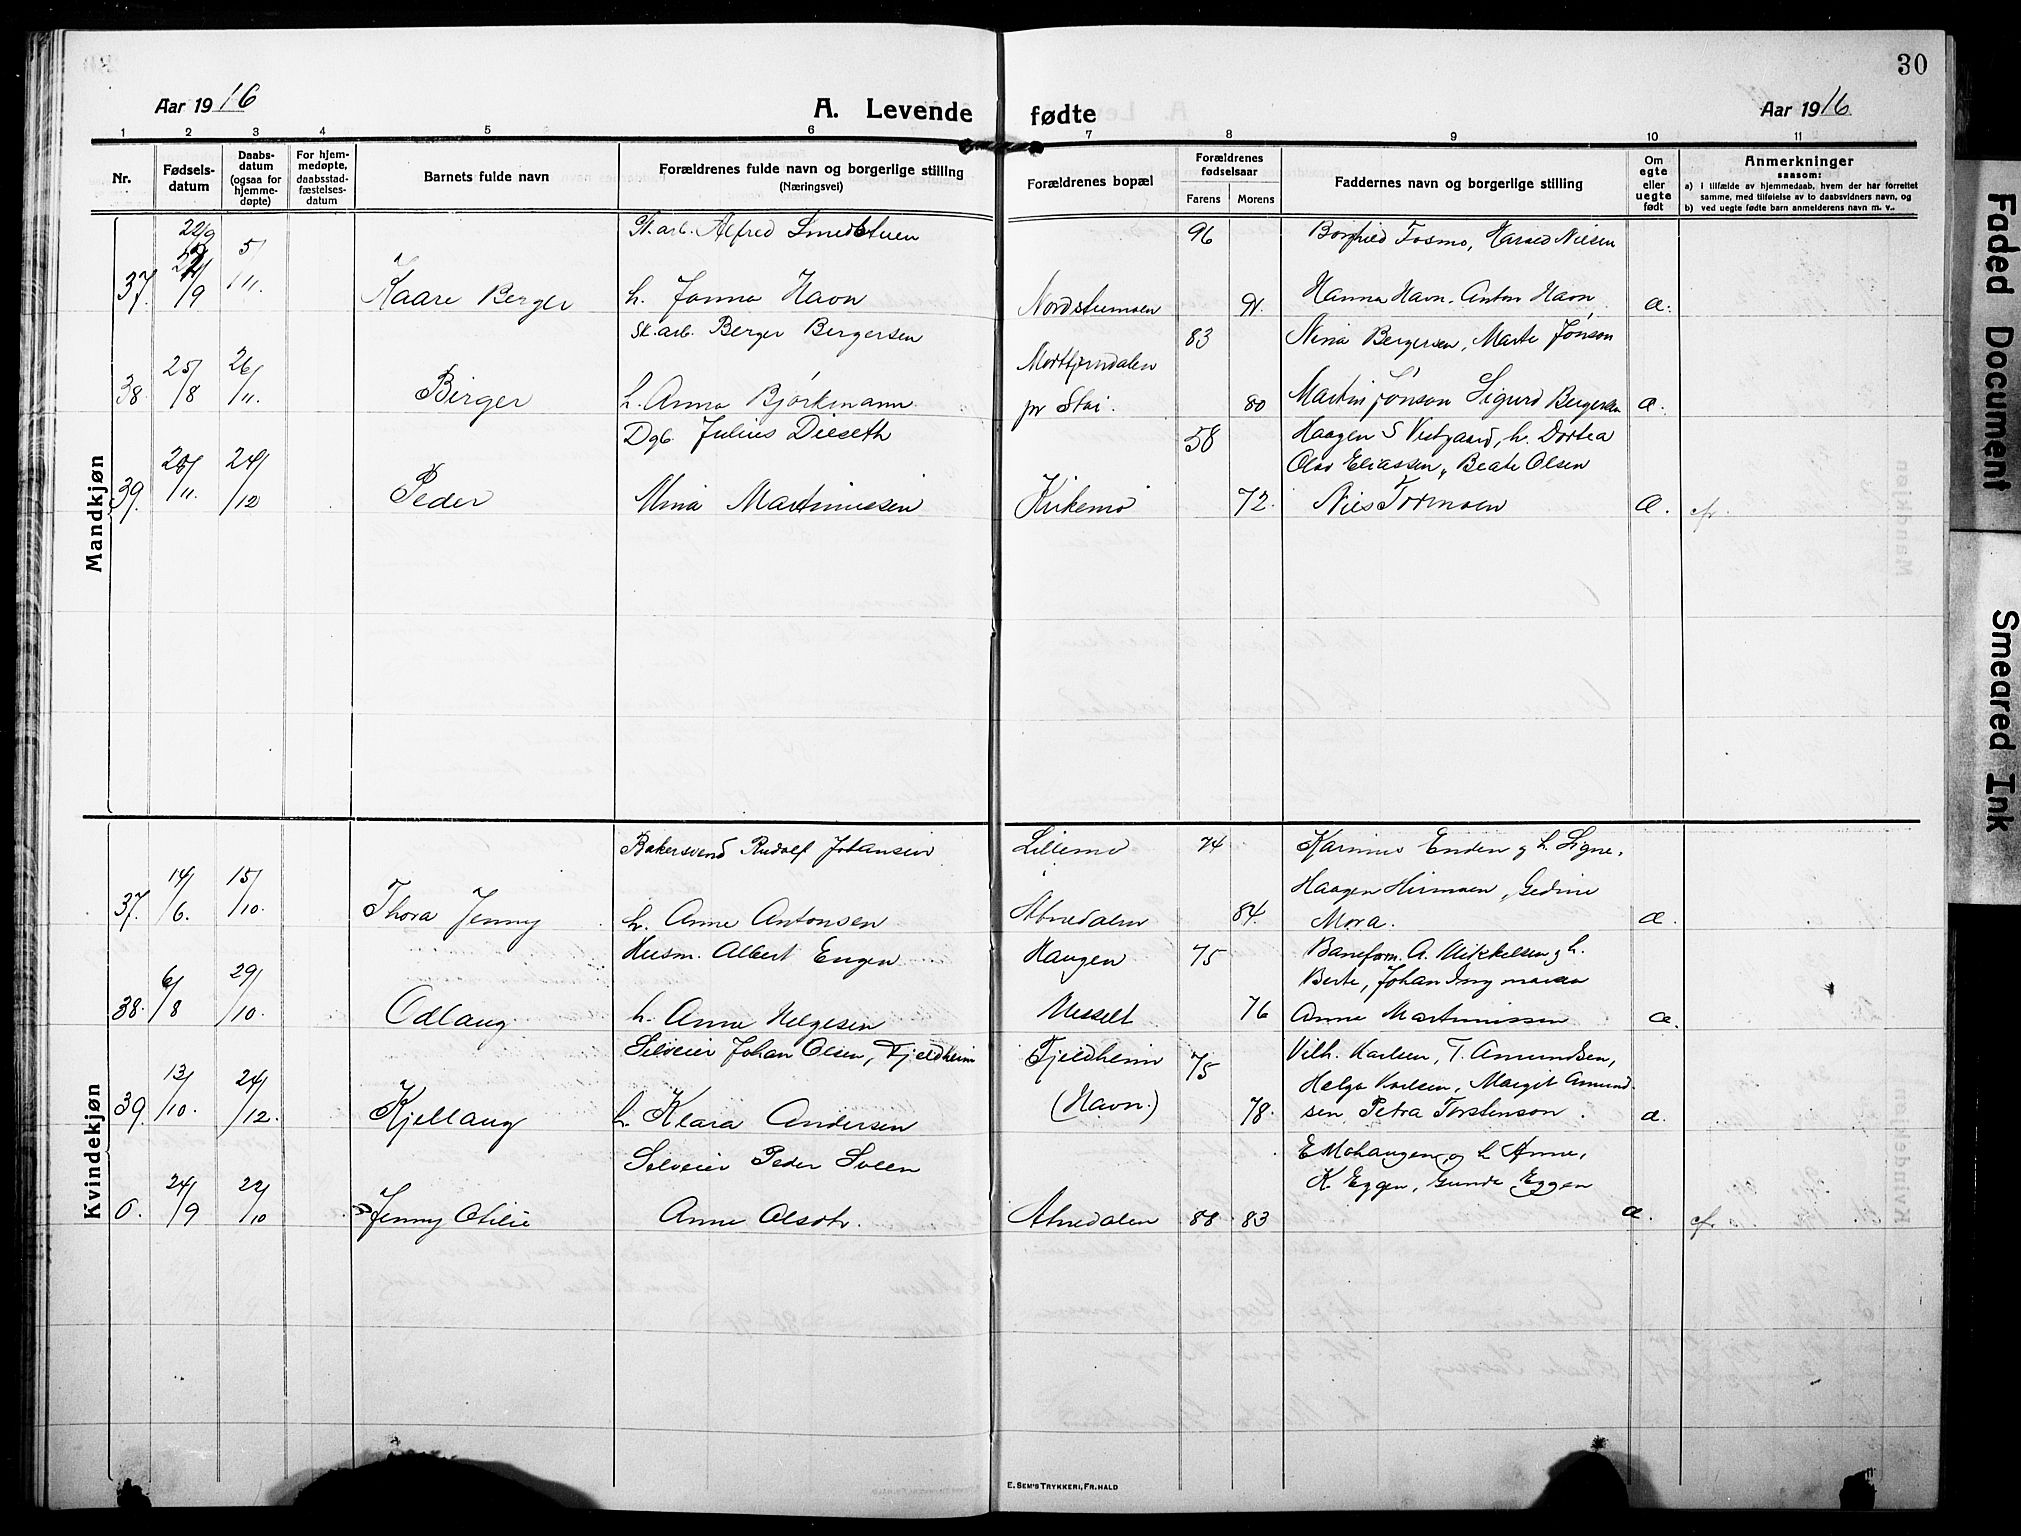 30
Aar 1916
A. Levende
fødte
Aar 1916
1 2 3 4 5 6 7 8 9 10 11
Nr.
Fødsels-
datum
Daabs-
datum
(ogsaa for
hjemme-
døpte)
For hjem-
medøpte,
daabsstad-
fæstelses-
datum
Barnets fulde navn
Forældrenes fulde navn og borgerlige stilling
(Næringsvei)
Forældrenes bopæl
Forældrenes
fødselsaar
Farens Morens
Faddernes navn og borgerlige stilling
Om
egte
eller
uegte
født
Anmerkninger
saasom:
a) i tilfælde av hjemmedaab, hvem der har forrettet
samme, med tilføielse av to daabsvidners navn, og
b) ved uegte fødte barn anmelderens navn m. v..
Mandkjøn
St. arb. Alfred Smedstuen 96 Borghild Fosmo, Harald Nilsen
37. 22/9 5/11. Kaare Berger h. Janna Havn Nordstumoen 91. Hanna Havn. Anton Havn æ.
Sk. arb. Berger Bergersen 83 Nina Bergersen, Marte Jönson
38. 25/8 26/11. Birger h. Anna Björkmann pr Stai. 80 Martin Jönson Sigurd Bergersen æ.
Dgb. Julius Dieseth 58 Haagen S Vestgaard, h. Dortea
Olav Eliassen, Beate Olsen
39. 20/11. 24/12 Peder Mina Martinussen Kirkemo 72. Nils Tormoen æ. cfr.
Kvindekjøn
Bakersvend Rudolf Johansen Lillemo 74 Karinus Enden g h. Signe,
Haagen Hirmoen, Gedine
37. 14/6. 15/10. Thora Jenny h. Anne Antonsen Atnedalen 84. Mora. æ
Husm. Albert Engen Haugen 75 Baneform. A. Mikkelsen g h.
Berte, Johan
38. 6/8 29/10. Odlaug h. Anne Helgesen Messelt 76 Anne Martinussen æ.
Selveier Johan Olsen, Fjeldheim Fjeldheim 75 Vilh. Karlsen, T. Amundsen,
Helga Karlsen, Margit Amund-
39. 13/10. 24/12. Kjellaug h. Klara Andersen (Havn.) 78. sen, Petra Torstenson. æ.
Selveier Peder Sveen E Mohaugen, og h Anne,
K. Eggen, Gunda Eggen
6. 24/9 22/10 Jenny Otilie Anne Olsdtr. Atnedalen 88 83 æ. cfr.
E. SEM'S TRYKKERI, FR.HALD
Faded Document
Smeared Ink